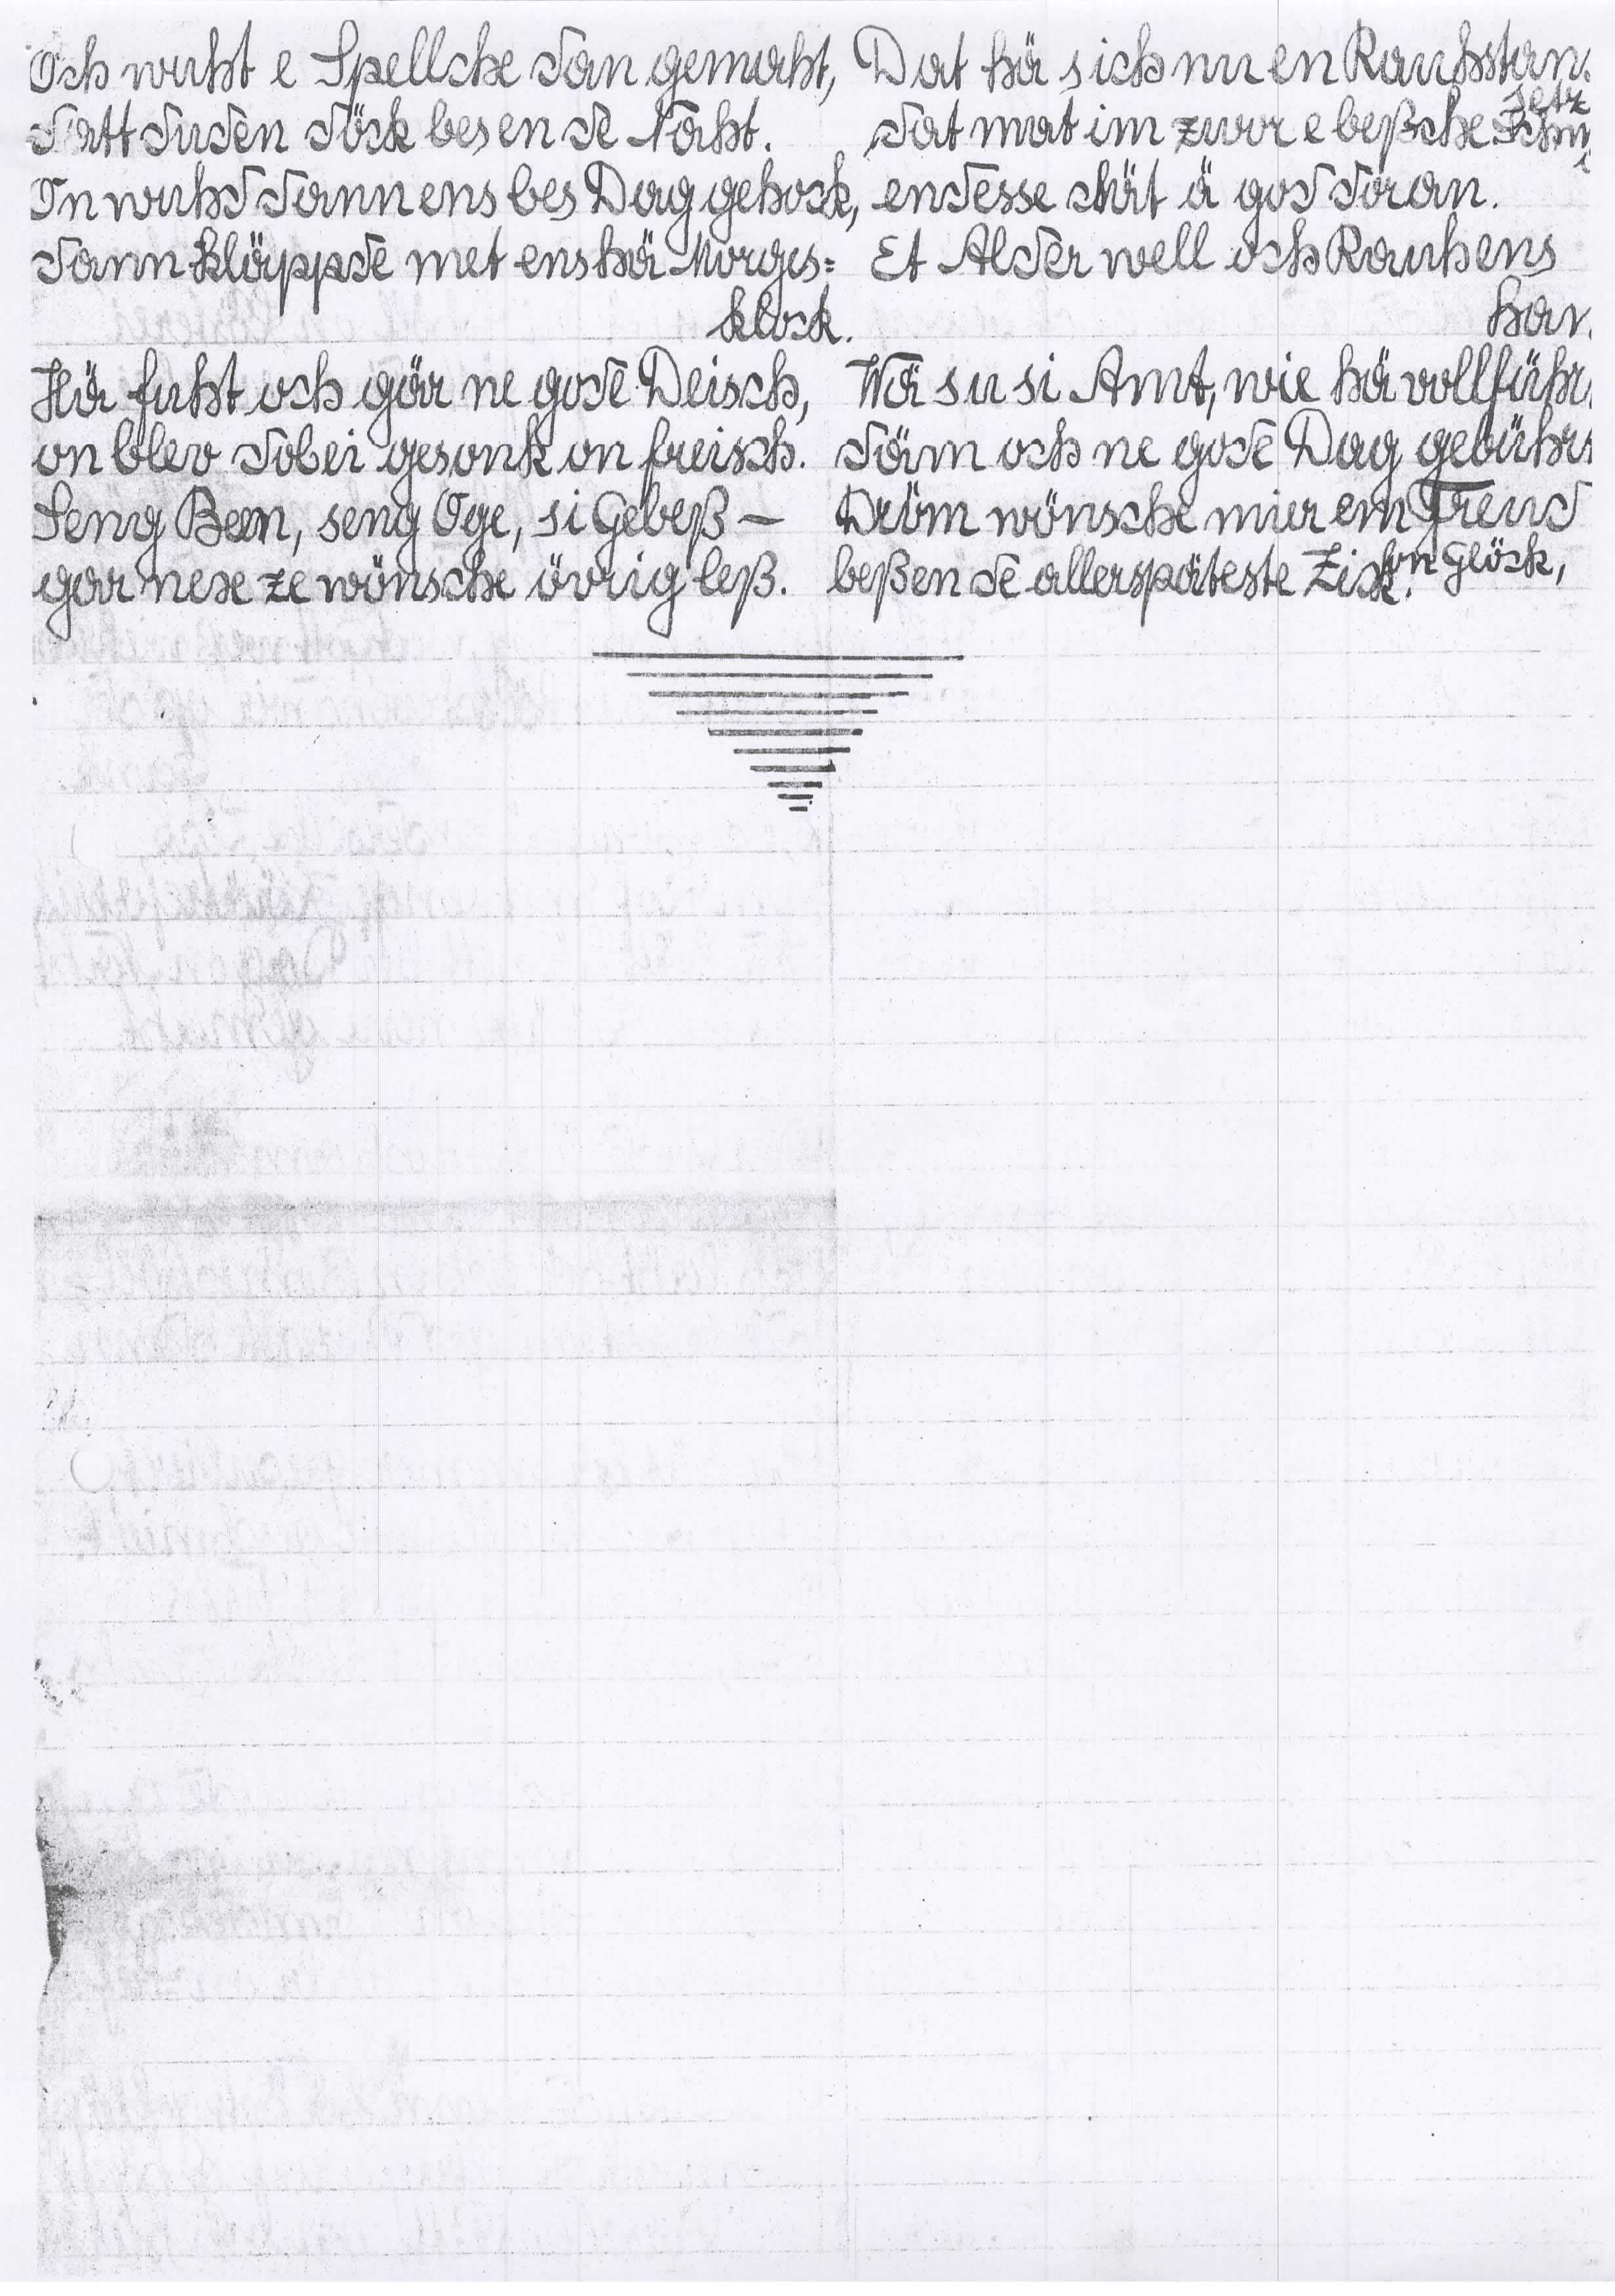 Och wuht e Spellche dan gemaht,
datt duden döck bes en de Naht.
On wuhd dann ens bes Dag gehock,
dann kläppde met ens hä Morges=
klock.
Hä fuht och gär ne gode Deisch,
on blev dobei gesonk on freisch.
Seng Been, seng Oge, si Gebeß –
gar nex ze wönsche övrig leß.
Dat hä sich nu en Rauhstan
setz
dat mat im zwor e beßche
endesse dhät ä god doran.
Et Alder well och Rauh ens
han.
Wä su si Amt, wie hä vollführ
däm och ne gode Dag gebührt
Dröm wönsche mier em Freud
on Glöck,
beß en de allerspäteste Zick.